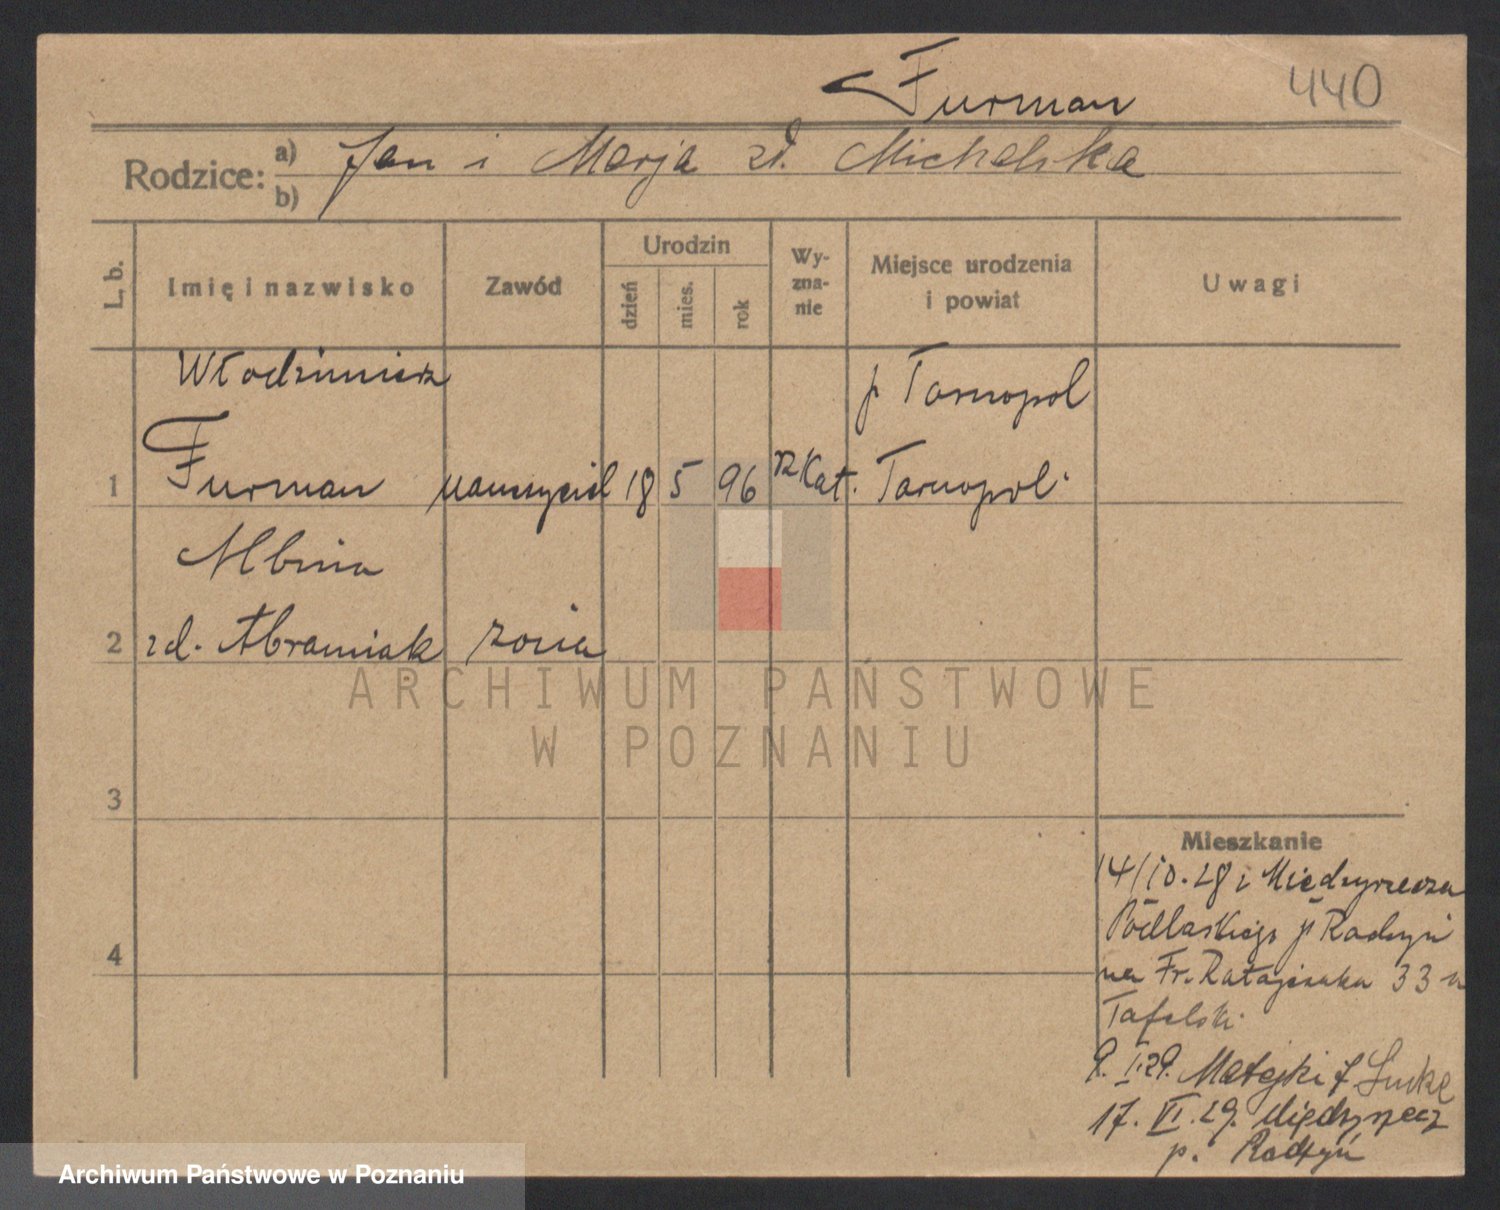 Furman 440
Rodzice: a) Jan i Marja zd. Michalska
b)
L. b. Imię i nazwisko Zawód Urodzin dzień mies. rok Wy-zna-nie Miejsce urodzenia i powiat Uwagi
Włodzimierz p Tarnopol
1 Furman nauczyciel 18 5 96 rz Kat. Tarnopol
Albina
2 zd. Abramiak żona
ARCHIWUM PAŃSTWOWE
W POZNANIU
3
Mieszkanie
14/10.28 z Międzyrzecza
Podlaskiego p Radzyń
4
na Fr. Ratajczaka 33 u
Tafelski
9. I.29. Matejki 7 Linke
17. VI. 29. Międzyrzecz
p. Radzyń
Archiwum Państwowe w Poznaniu